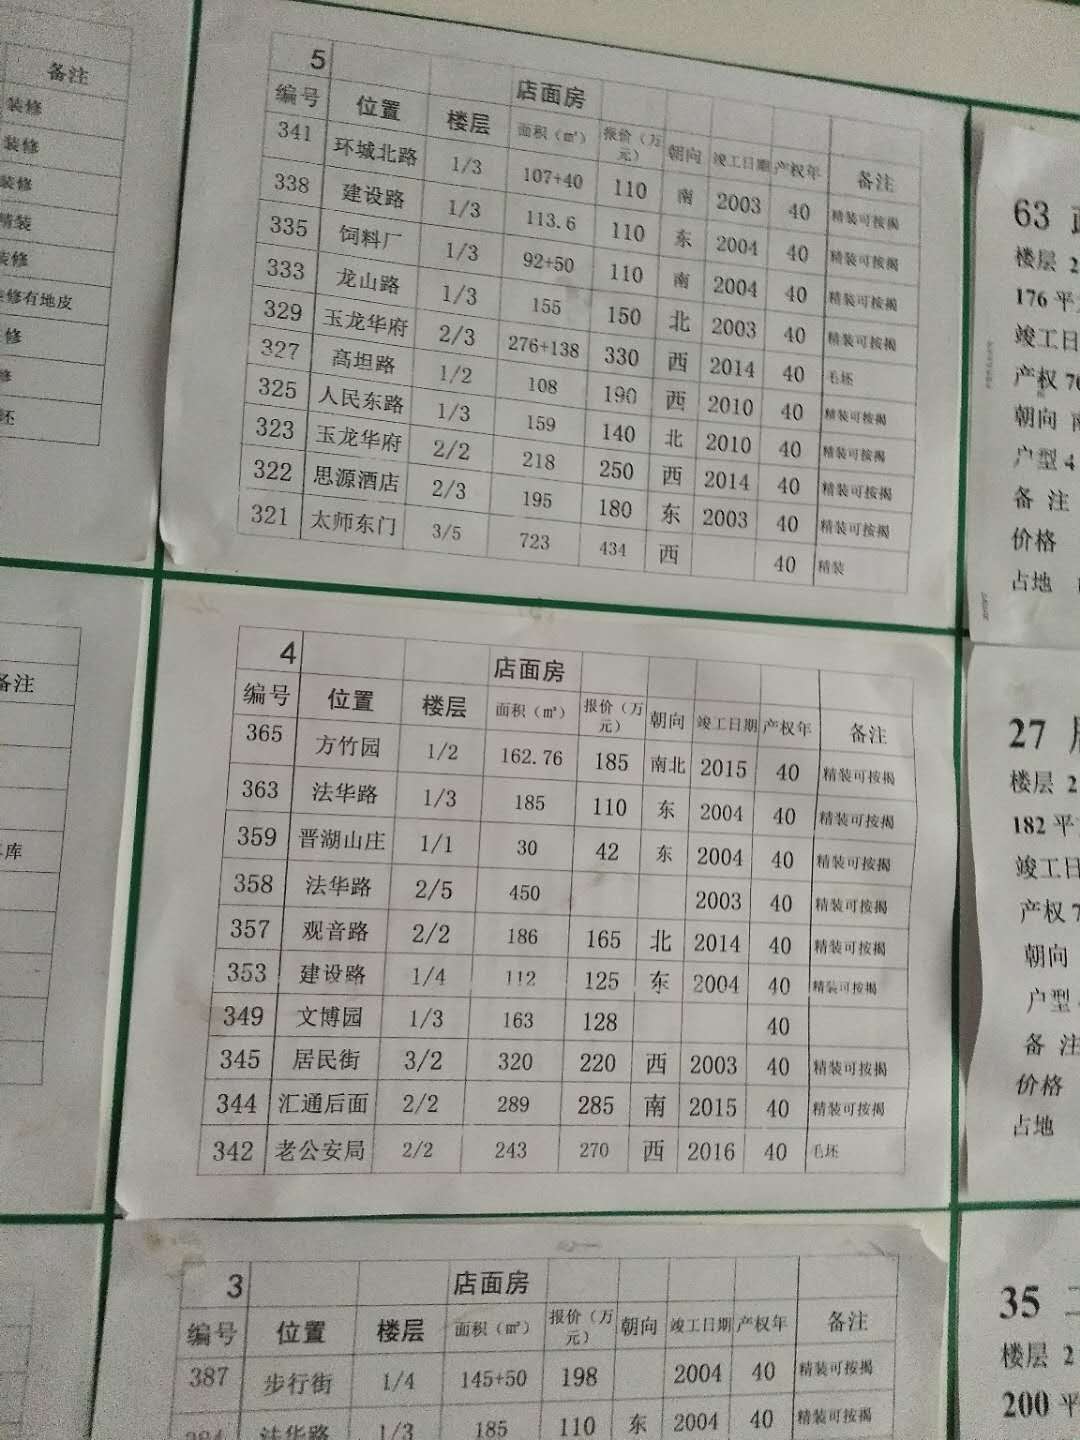 备注
装修
装修
装修
精装
装修
修有地皮
修
修
坯
5 店面房
编号 位置 楼层 面积（㎡） 报价（万元） 朝向 竣工日期 产权年 备注
341 环城北路 1/3 107+40 110 南 2003 40 精装可按揭
338 建设路 1/3 113.6 110 东 2004 40 精装可按揭
335 饲料厂 1/3 92+50 110 南 2004 40 精装可按揭
333 龙山路 1/3 155 150 北 2003 40 精装可按揭
329 玉龙华府 2/3 276+138 330 西 2014 40 毛坯
327 高坦路 1/2 108 190 西 2010 40 精装可按揭
325 人民东路 1/3 159 140 北 2010 40 精装可按揭
323 玉龙华府 2/2 218 250 西 2014 40 精装可按揭
322 思源酒店 2/3 195 180 东 2003 40 精装可按揭
321 太师东门 3/5 723 434 西 40 精装
63
楼层 2
176 平
竣工日
产权 70
朝向 南
户型 4
备 注
价格
占地
备注
库
4 店面房
编号 位置 楼层 面积（㎡） 报价（万元） 朝向 竣工日期 产权年 备注
365 方竹园 1/2 162.76 185 南北 2015 40 精装可按揭
363 法华路 1/3 185 110 东 2004 40 精装可按揭
359 晋湖山庄 1/1 30 42 东 2004 40 精装可按揭
358 法华路 2/5 450 2003 40 精装可按揭
357 观音路 2/2 186 165 北 2014 40 精装可按揭
353 建设路 1/4 112 125 东 2004 40 精装可按揭
349 文博园 1/3 163 128 40
345 居民街 3/2 320 220 西 2003 40 精装可按揭
344 汇通后面 2/2 289 285 南 2015 40 精装可按揭
342 老公安局 2/2 243 270 西 2016 40 毛坯
27
楼层 2
182 平
竣工日
产权 7
朝向
户型
备 注
价格
占地
3 店面房
编号 位置 楼层 面积（㎡） 报价（万元） 朝向 竣工日期 产权年 备注
387 步行街 1/4 145+50 198 2004 40 精装可按揭
384 法华路 1/3 185 110 东 2004 40 精装可按揭
35
楼层 2
200 平